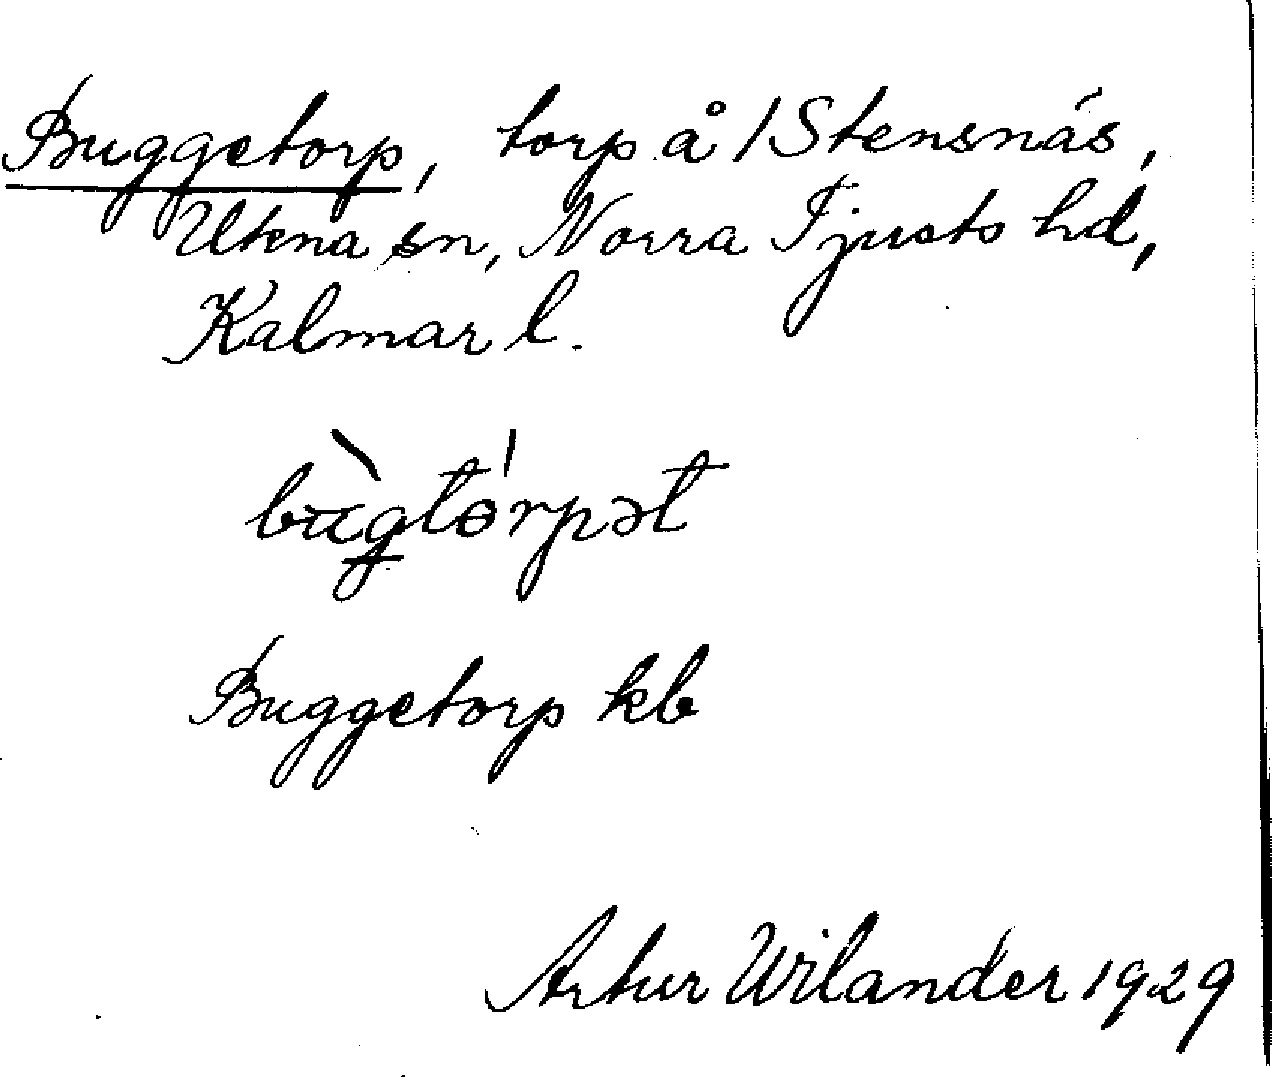 Buggetorp, torp å /Stensnäs,
Ukna sn, Norra Tjusts hd,
Kalmar l.
bùgtórpət
Buggetorp kb
Artur Wilander 1929